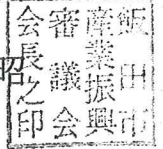 飯田市
産業振興
審議会
会長之印
昭